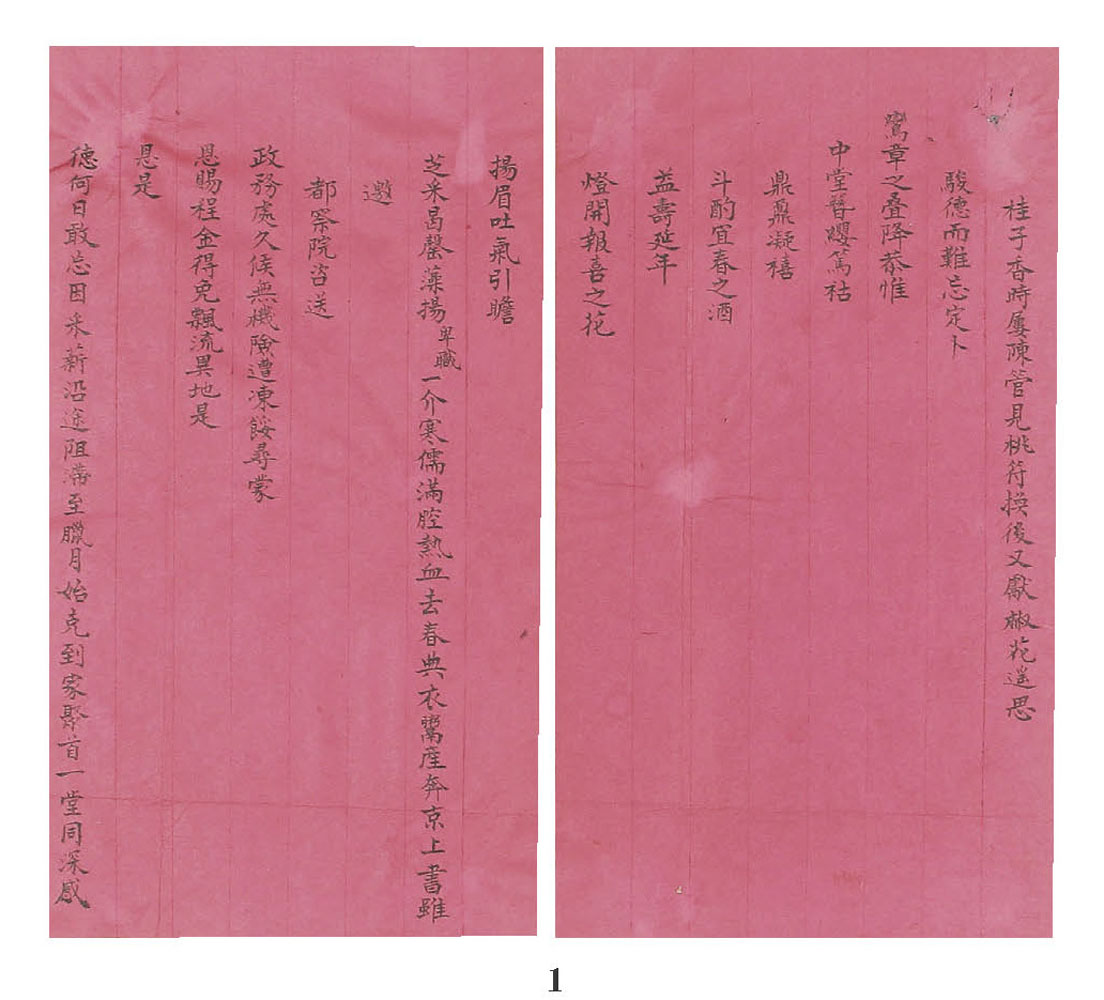 桂子香時屢陳管見桃符換後又獻椒花遙思
駿德而難忘定卜
鸞章之叠降恭惟
中堂簪纓篤祜
鼎鼐凝禧
斗酌宜春之酒
益壽延年
燈開報喜之花
揚眉吐氣引瞻
芝采曷罄藻揚卑職一介寒儒滿腔熱血去春典衣鬻產奔京上書雖
邀
都察院咨送
政務處久候無機險遭凍餒尋蒙
恩賜程金得免飄流異地是
恩是
德何日敢忘因采薪沿途阻滯至臘月始克到家聚首一堂同深感
1